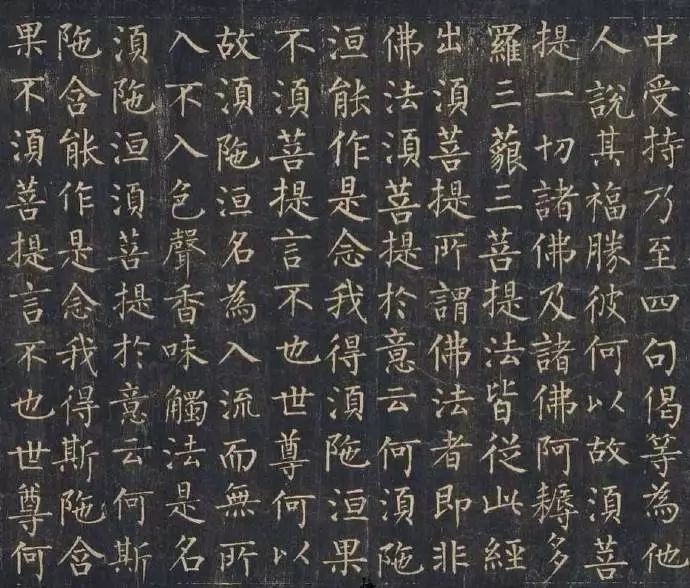 中受持乃至四句偈等為他
人說其福勝彼何以故須菩
提一切諸佛及諸佛阿耨多
羅三藐三菩提法皆從此經
出須菩提所謂佛法者即非
佛法須菩提於意云何須陁
洹能作是念我得須陁洹果
不須菩提言不也世尊何以
故須陁洹名為入流而無所
入不入色聲香味觸法是名
須陁洹須菩提於意云何斯
陁含能作是念我得斯陁含
果不須菩提言不也世尊何